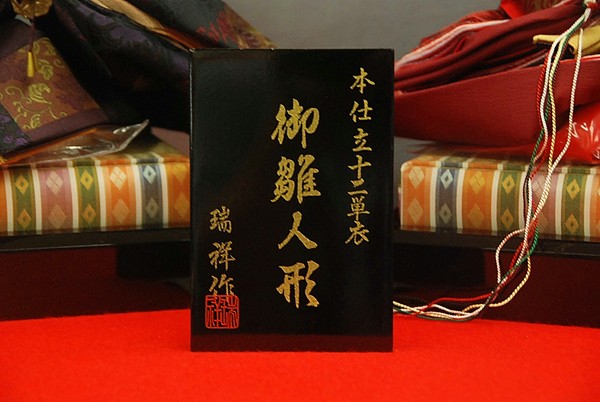 本仕立十二単衣
御雛人形
瑞祥作